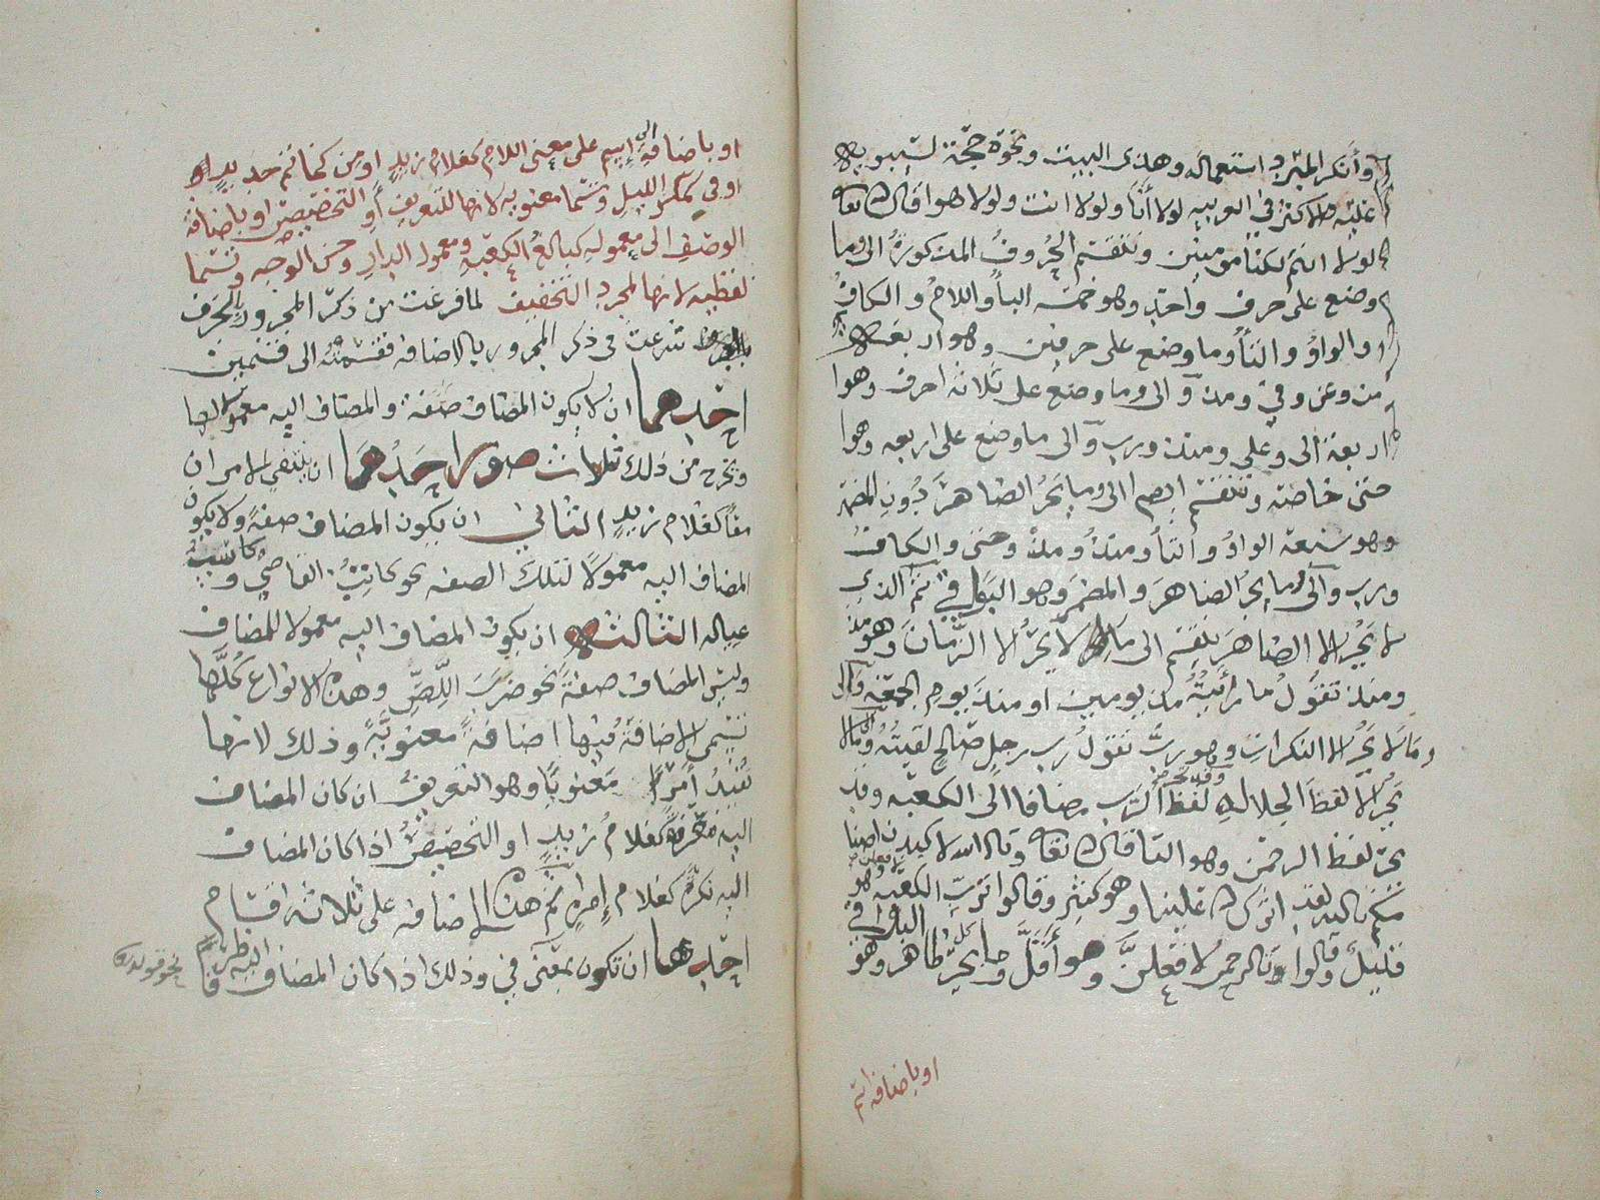 وأنكر المبرد استعماله وهذى البيت ونحوه حجة لسيبويه
عليه والاكثر في العربيه لولا أنا ولولا انت ولولا هو اقال الله تعالى
لولا انتم لكنا مؤمنين وتنقسم الحروف المذكورة الى وما
وضع على حرف واحد وهو خمسه البا واللام والكاف
والواو والتا وما وضع على حرفين وهو اربعة
من وعن وفي ومذ والى وما وضع على ثلاثة احرف وهوا
اربعة الى وعلى ومنذ ورب والى ما وضع على اربعه وهوا
حتى خاصة وتنقسم ايضا الى وما يجر الضاهر دون المضمر
وهو سبعة الواو والتا ومنذ ومذ وحتى والكاف
ورب والى وما يجر الضاهر والمضمر وهو البواقي ثم الذي
لا يجر الا الضاهر ينقسم الى ما لا يجر الا الزمان وهو مذ
ومنذ تقول ما رأيته مذ يومين او منذ يوم الجمعه والى
وما لا يجر الا النكرات وهو رب تقول رب رجل صالح لقيته والى ما لا
يجر الا لفظ الجلاله وقد يجر لفظ الرب مضافا الى الكعبه وقد
يجر لفظ الرحمن وهو التا قال الله تعالى وتالله لاكيدن اصنا
مكم تالله لقد اثرك الله علينا وهو كثير وقالوا ترب الكعبه لافعلن وهو
قليل وقالوا تالرحمن لافعلن وهو أقل وما يجر كل ظاهر وهو البواقي
او باضافة اسم
او باضافة الى إسم على معنى اللام كغلام زيد او من كخاتم حديد
او في كمكر الليل وتسما معنويه لانها للتعريف أو التخصيص او باضافة
الوصف الى معموله كبالغ الكعبة ومعمور الدار وحسن الوجه وتسما
لفظيه لانها لمجرد التخفيف لما فرغت من ذكر المجرور بالحرف
شرعت في ذكر المجرور بالاضافة فقسمته الى قسمين
احدهما ان لا يكون المضاف صفة والمضاف اليه معمولا لها
ويخرج من ذلك ثلاث صور احدهما ان ينتفي الامران
معا كغلام زيد الثاني ان يكون المضاف صفة ولا يكون
المضاف اليه معمولا لتلك الصفه نحو كاتب القاضي وكاسب
عياله الثالث ان يكون المضاف اليه معمولا للمضاف
وليس المضاف صفة نحو ضرب اللص وهذه الانواع كلها
تسمى الاضافة فيها اضافة معنوية وذلك لانها
تفيد أمرا معنويا وهو التعريف ان كان المضاف
اليه معرفة كغلام زيد او التخصيص اذا كان المضاف
اليه نكرة كغلام إمراة ثم هذه الاضافه على ثلاثة اقسام
احدها ان تكون بمعنى في وذلك اذا كان المضاف اليه ظرفا
نحو قوله